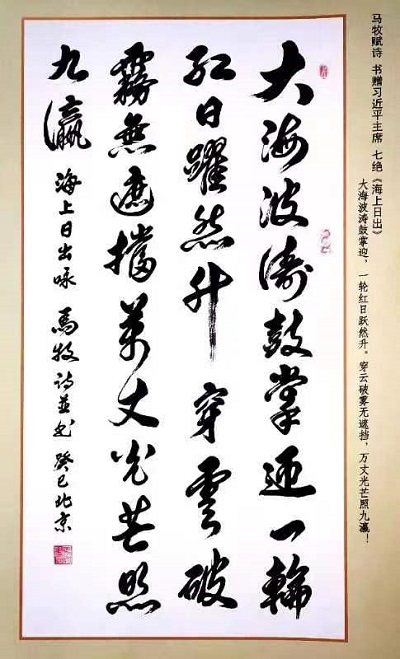 马牧赋诗 书赠习近平主席 七绝《海上日出》
大海波涛鼓掌迎，一轮红日跃然升。穿云破雾无遮挡，万丈光芒照九瀛！
大海波涛鼓掌迎一輪
红日躍然升穿雲破
霧無遮擋萬丈光芒照
九瀛 海上日出咏 馬牧诗並书 癸巳北京